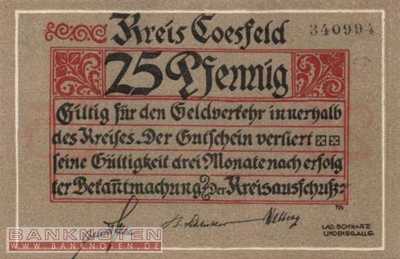 Kreis Coesfeld
340994
25 Pfennig
Giltig für den Geldverkehr innerhalb
des Kreises. Der Gutschein verliert
seine Gültigkeit drei Monate nach erfolg
ter Bekanntmachung. Der Kreisausschuß:
BANKNOTEN
WWW.BANKNOTEN.DE